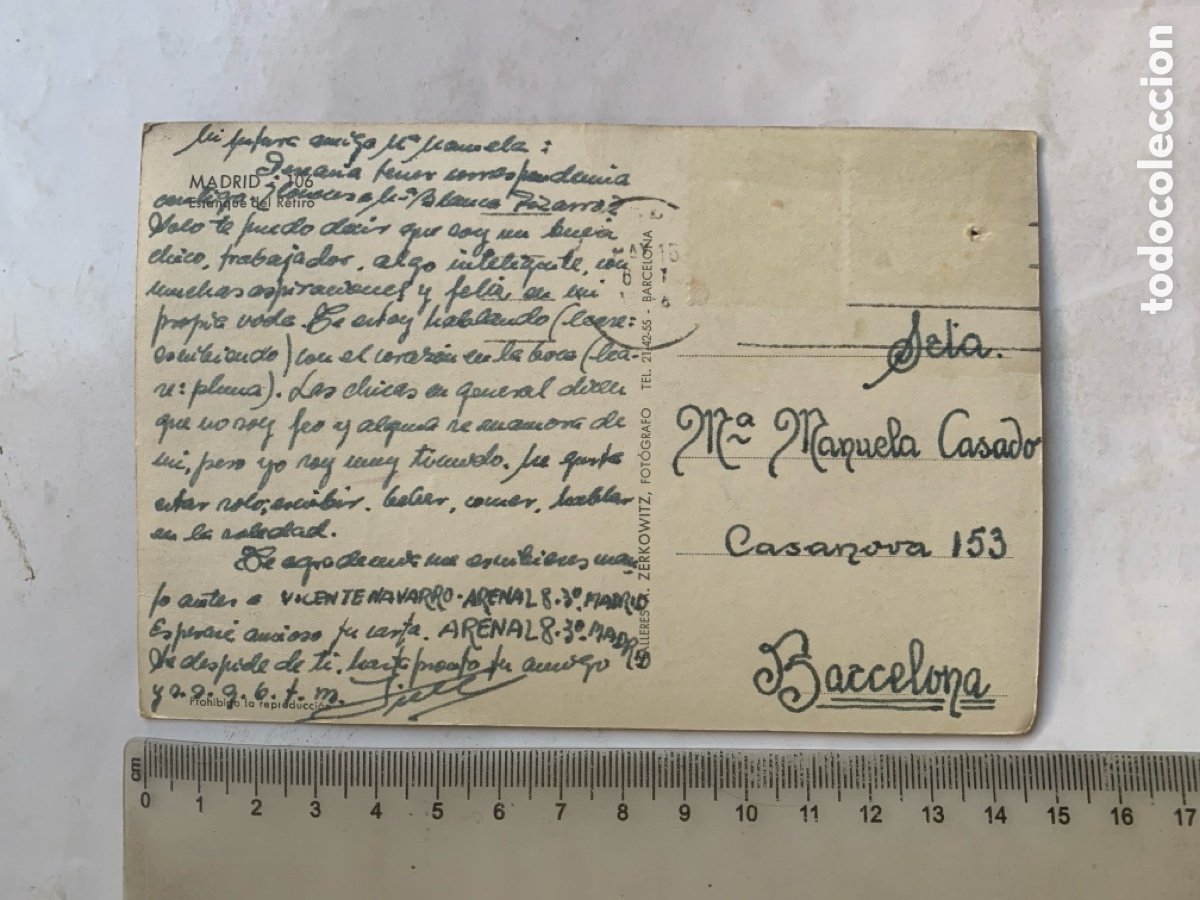 Mi futura amiga Mª Manuela:
Desearía tener correspondencia
contigo. ¿Conoces a Mª Blanca Pizarro?
Solo te puedo decir que soy un buen
chico, trabajador, algo inteligente, con
muchas aspiraciones y feliz en mi
propia vida. Te estoy hablando (léase:
escribiendo) con el corazón en la boca (léa-
se: pluma). Las chicas en general dicen
que no soy feo y alguna se enamora de
mi, pero yo soy muy tímido. Me gusta
estar solo; escribir, beber, comer, hablar
en la soledad.
Te agradecería me escribieras
to antes a VICENTE NAVARRO-ARENAL 8.3º. MADRID
Esperaré ansioso tu carta. ARENAL 8.3º. MADRID
Se despide de ti, hasta pronto tu amigo
y s. s. q. b. t. m.
MADRID - 106
Estanque del Retiro
Prohibida la reproducción
TALLERES A. ZERKOWITZ, FOTÓGRAFO TEL. 21-42-55 - BARCELONA
Srta.
Mª Manuela Casado
Casanova 153
Barcelona
cm
0 1 2 3 4 5 6 7 8 9 10 11 12 13 14 15 16 17
todocoleccion